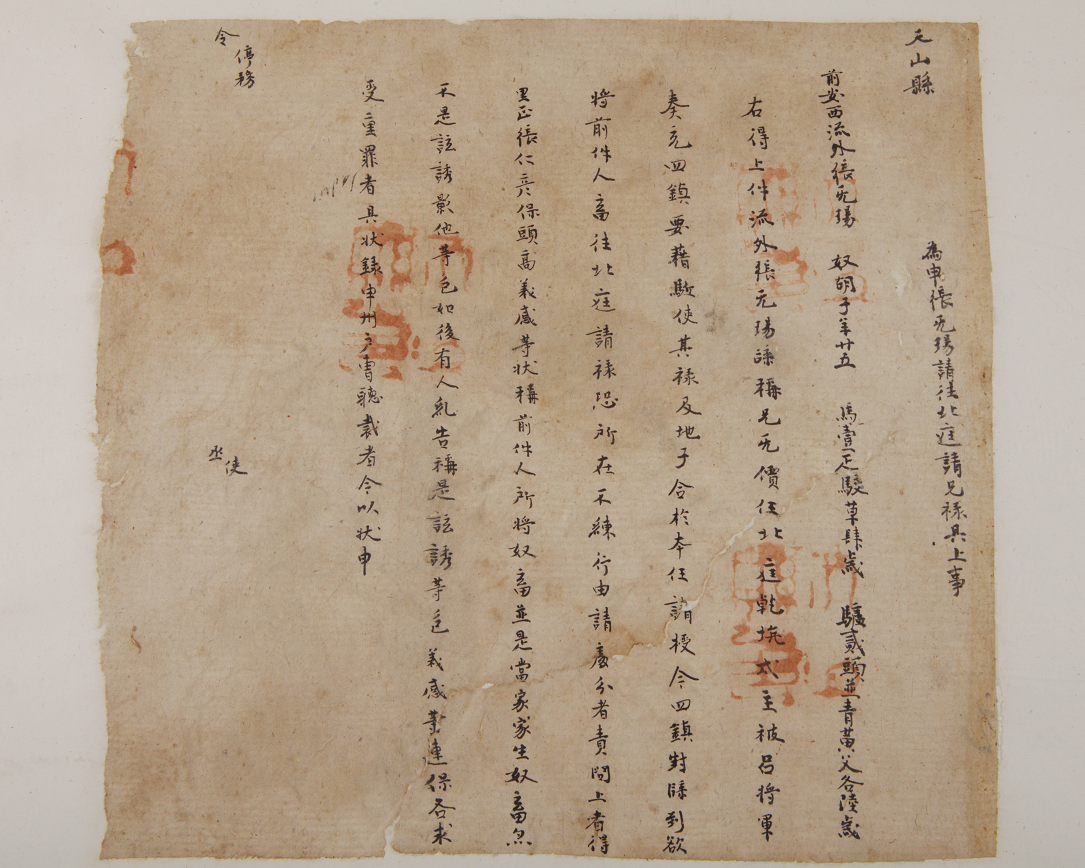 天山縣
為申張无瑒請往北庭請兄祿具上事
前安西流外張无瑒 奴胡子年廿五 馬壹疋駮草肆歲 驢貳頭並青黃父各陸歲
右得上件流外張无瑒牒稱兄无價任北庭乾坑戍主被呂將軍
奏充四鎮要藉驅使其祿及地子合於本任請授今四鎮封牒到欲
將前件人畜往北庭請祿恐所在不練行由請處分者責問上者得
里正張仁彥保頭高義感等狀稱前件人所將奴畜並是當家家生奴畜亦
不是詃誘影他等色如後有人糺告稱是詃誘等色義感等連保各求
受重罪者具狀錄申州戶曹聽裁者今以狀申
令 停務
丞 使